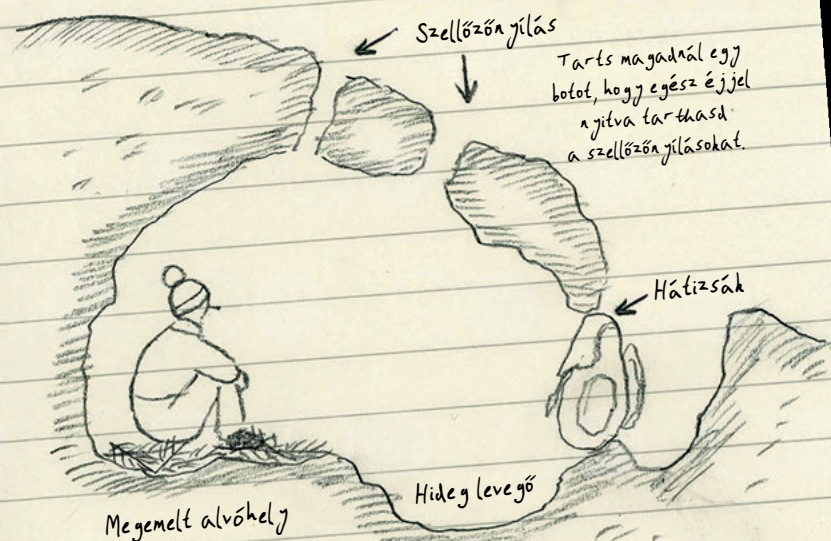 Szellőzőnyílás
Tarts magadnál egy
botot, hogy egész éjjel
nyitva tarthasd
a szellőzőnyílásokat.
Hátizsák
Hideg levegő
Megemelt alvóhely